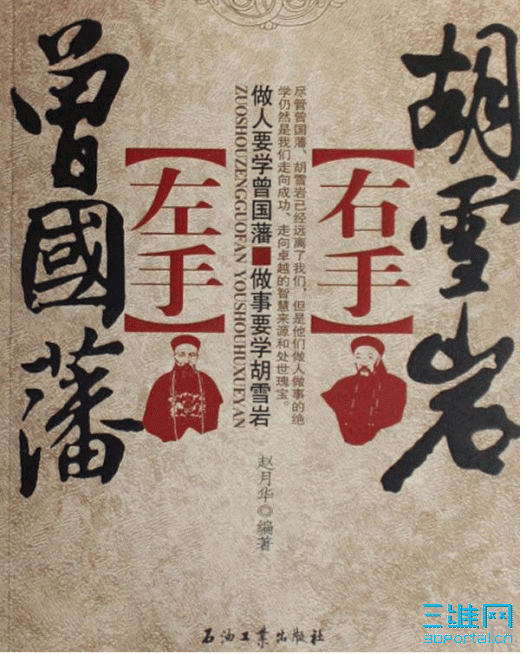 曾國藩
【左手】
做人要学曾国藩■做事要学胡雪岩
ZUOSHOUZENGGUOFAN YOUSHOUHUXUEYAN
尽管曾国藩、胡雪岩已经远离了我们，但是他们做人做事的绝
学仍然是我们走向成功、走向卓越的智慧来源和处世瑰宝。
【右手】
胡雪岩
赵月华◎编著
石油工業出版社
三维网
3dportal.cn